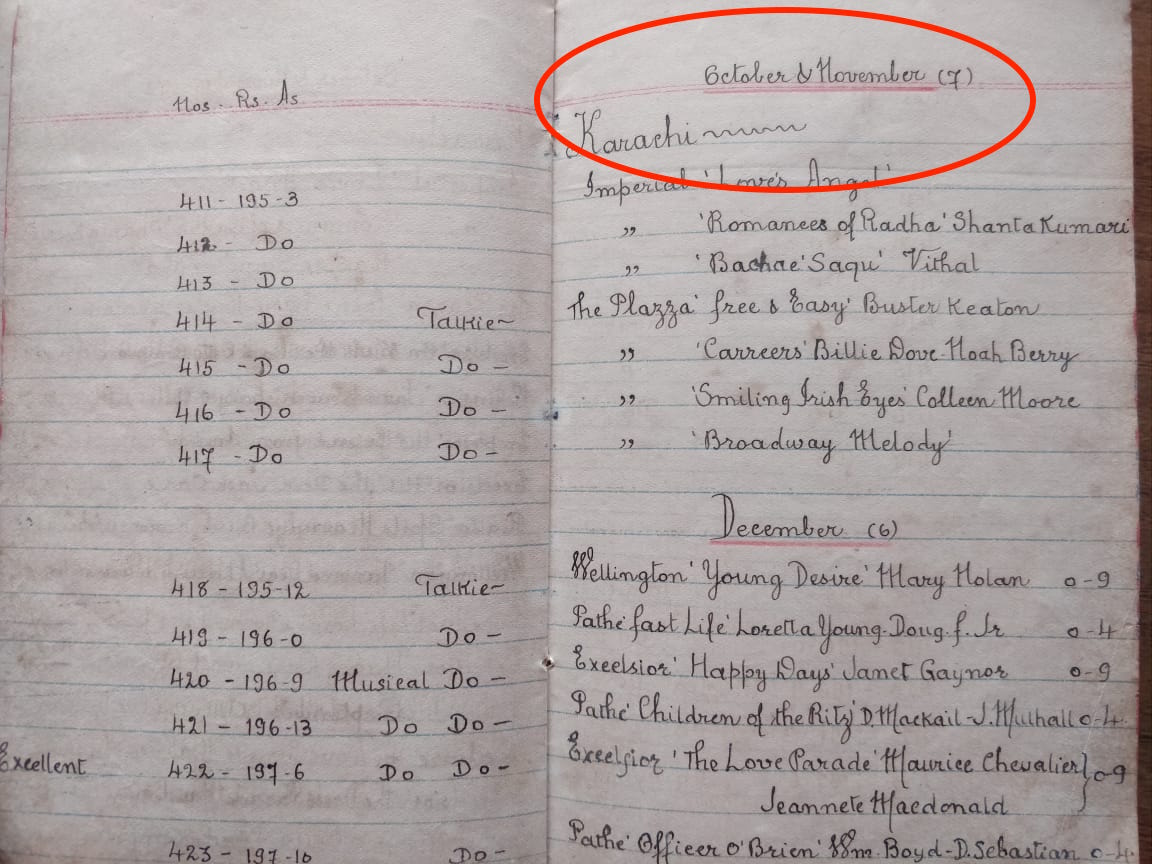 Nos. Rs. As
411 - 195-3
412 - Do
413 - Do
414 - Do Talkie
415 - Do Do -
416 - Do Do -
417 - Do Do -
418 - 195-12 Talkie
419 - 196-0 Do -
420 - 196-9 Musical Do -
421 - 196-13 Do Do -
Excellent 422 - 197-6 Do Do -
423 - 197-10 Do -
October & November (7)
Karachi
Imperial 'Love's Angel'
" 'Romances of Radha' Shanta Kumari
" 'Bachae Saqu' Vithal
The Plazza' free & Easy' Buster Keaton
" 'Carreers' Billie Dove-Noah Berry
" 'Smiling Irish Eyes' Colleen Moore
" 'Broadway Melody'
December (6)
Wellington 'Young Desire' Mary Nolan 0-9
Pathe' fast Life' Loretta Young. Doug. f. Jr 0-4
Excelsior 'Happy Days' Janet Gaynor 0-9
Pathe' Children of the Ritz' D. Mackail-J. Mulhall 0-4
Excelsior 'The Love Parade' Maurice Chevalier } 0-9
Jeannete Macdonald
Pathe' Officer O'Brien' Wm. Boyd-D. Sebastian 0-4